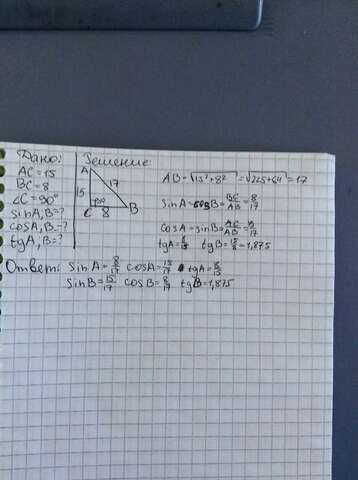 Дано:
AC=15
BC=8
∠C=90°
sinA,B=?
cosA,B=?
tgA,B=?
Решение:
A
15
17
90°
C
8
B
AB=√15²+8²=√225+64=17
sinA=cosB=BC/AB=8/17
cosA=sinB=AC/AB=15/17
tgA=8/15 tgB=15/8=1,875
Ответ: sinA=8/17 cosA=15/17 tgA=8/15
sinB=15/17 cosB=8/17 tgB=1,875